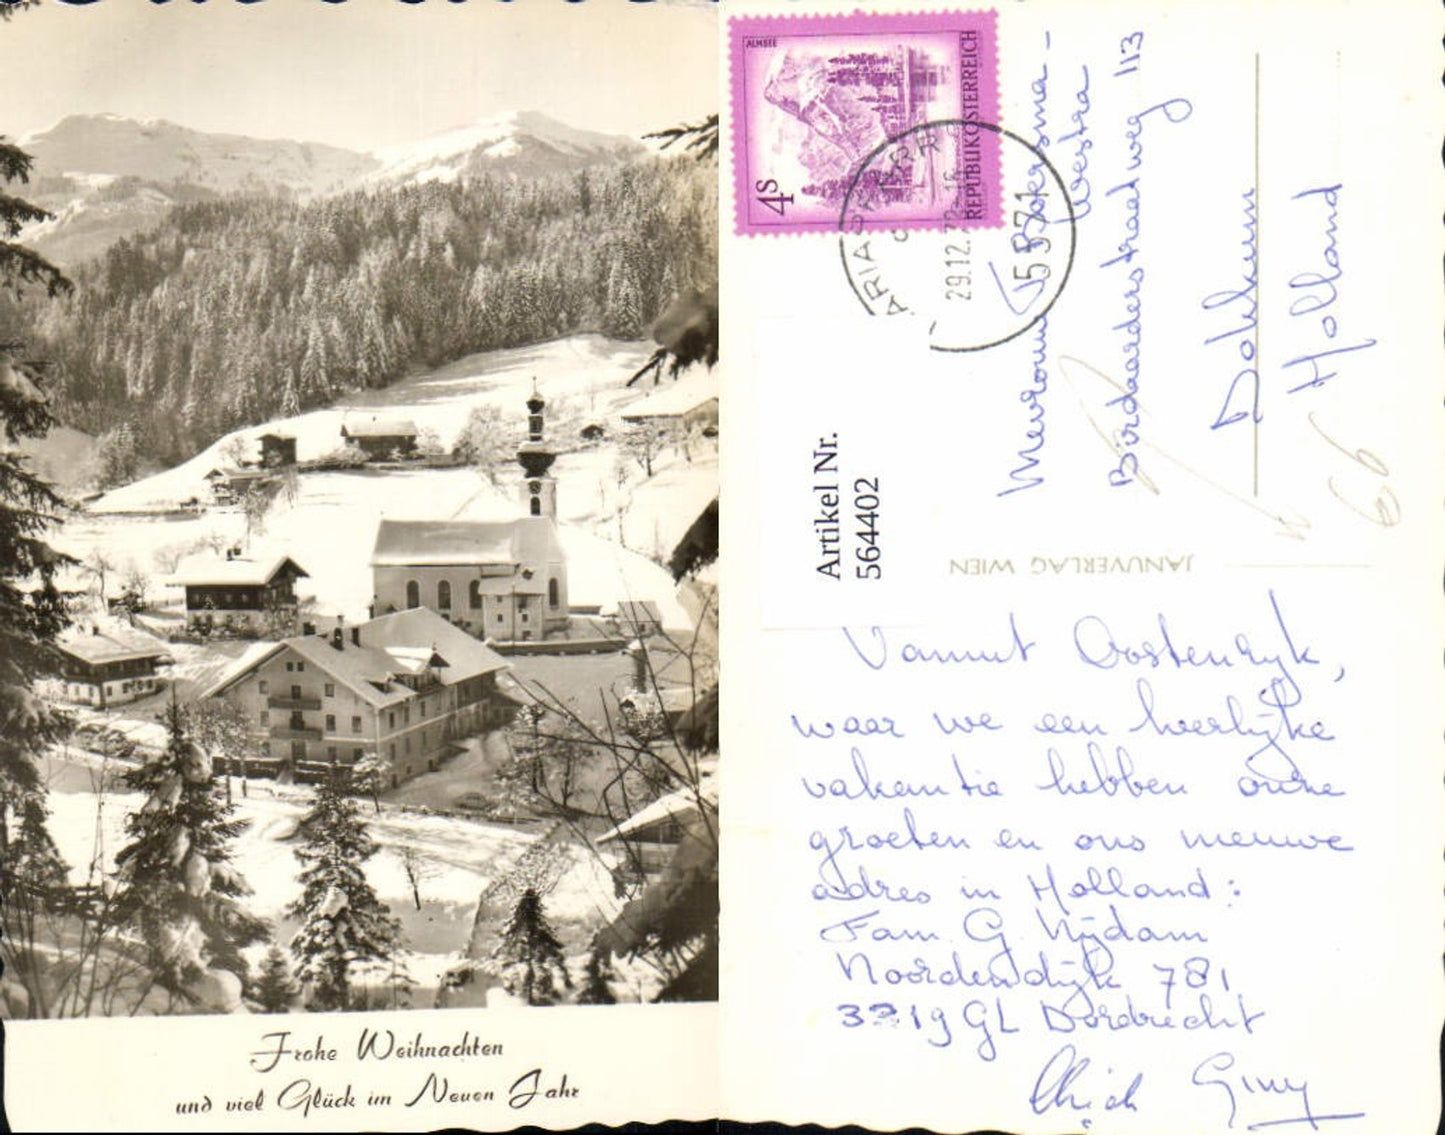 Frohe Weihnachten
und viel Glück im Neuen Jahr
ALMSEE
4 S
REPUBLIK ÖSTERREICH
29.12.
5571
Mevrouw J. Boersma-
Westra
Birdaarderstraatweg 113
Dokkum
Holland
66
Artikel Nr.
564402
JANUVERLAG WIEN
Vanuit Oostenryk,
waar we een heerlijke
vakantie hebben onze
groeten en ons nieuwe
adres in Holland:
Fam. G. Nijdam
Noordendijk 781
3319 GL Dordrecht
Giny